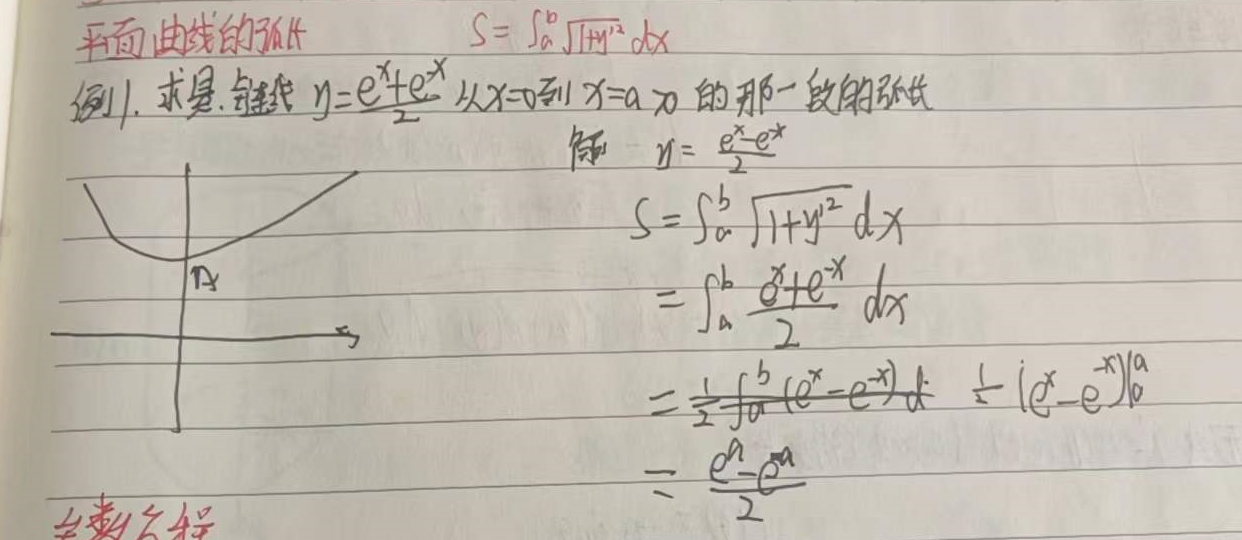 平面曲线的弧长 S=∫ₐᵇ√(1+y'²) dx
例1. 求悬链线 y=(eˣ+e⁻ˣ)/2 从x=0到x=a>0 的那一段的弧长
解 y'= (eˣ-e⁻ˣ)/2
S=∫ₐᵇ√(1+y'²) dx
=∫ₐᵇ (eˣ+e⁻ˣ)/2 dx
=1/2 ∫ₐᵇ (eˣ-e⁻ˣ) d 1/2 (eˣ-e⁻ˣ)|₀ᵃ
= (eᵃ-e⁻ᵃ)/2
参数方程